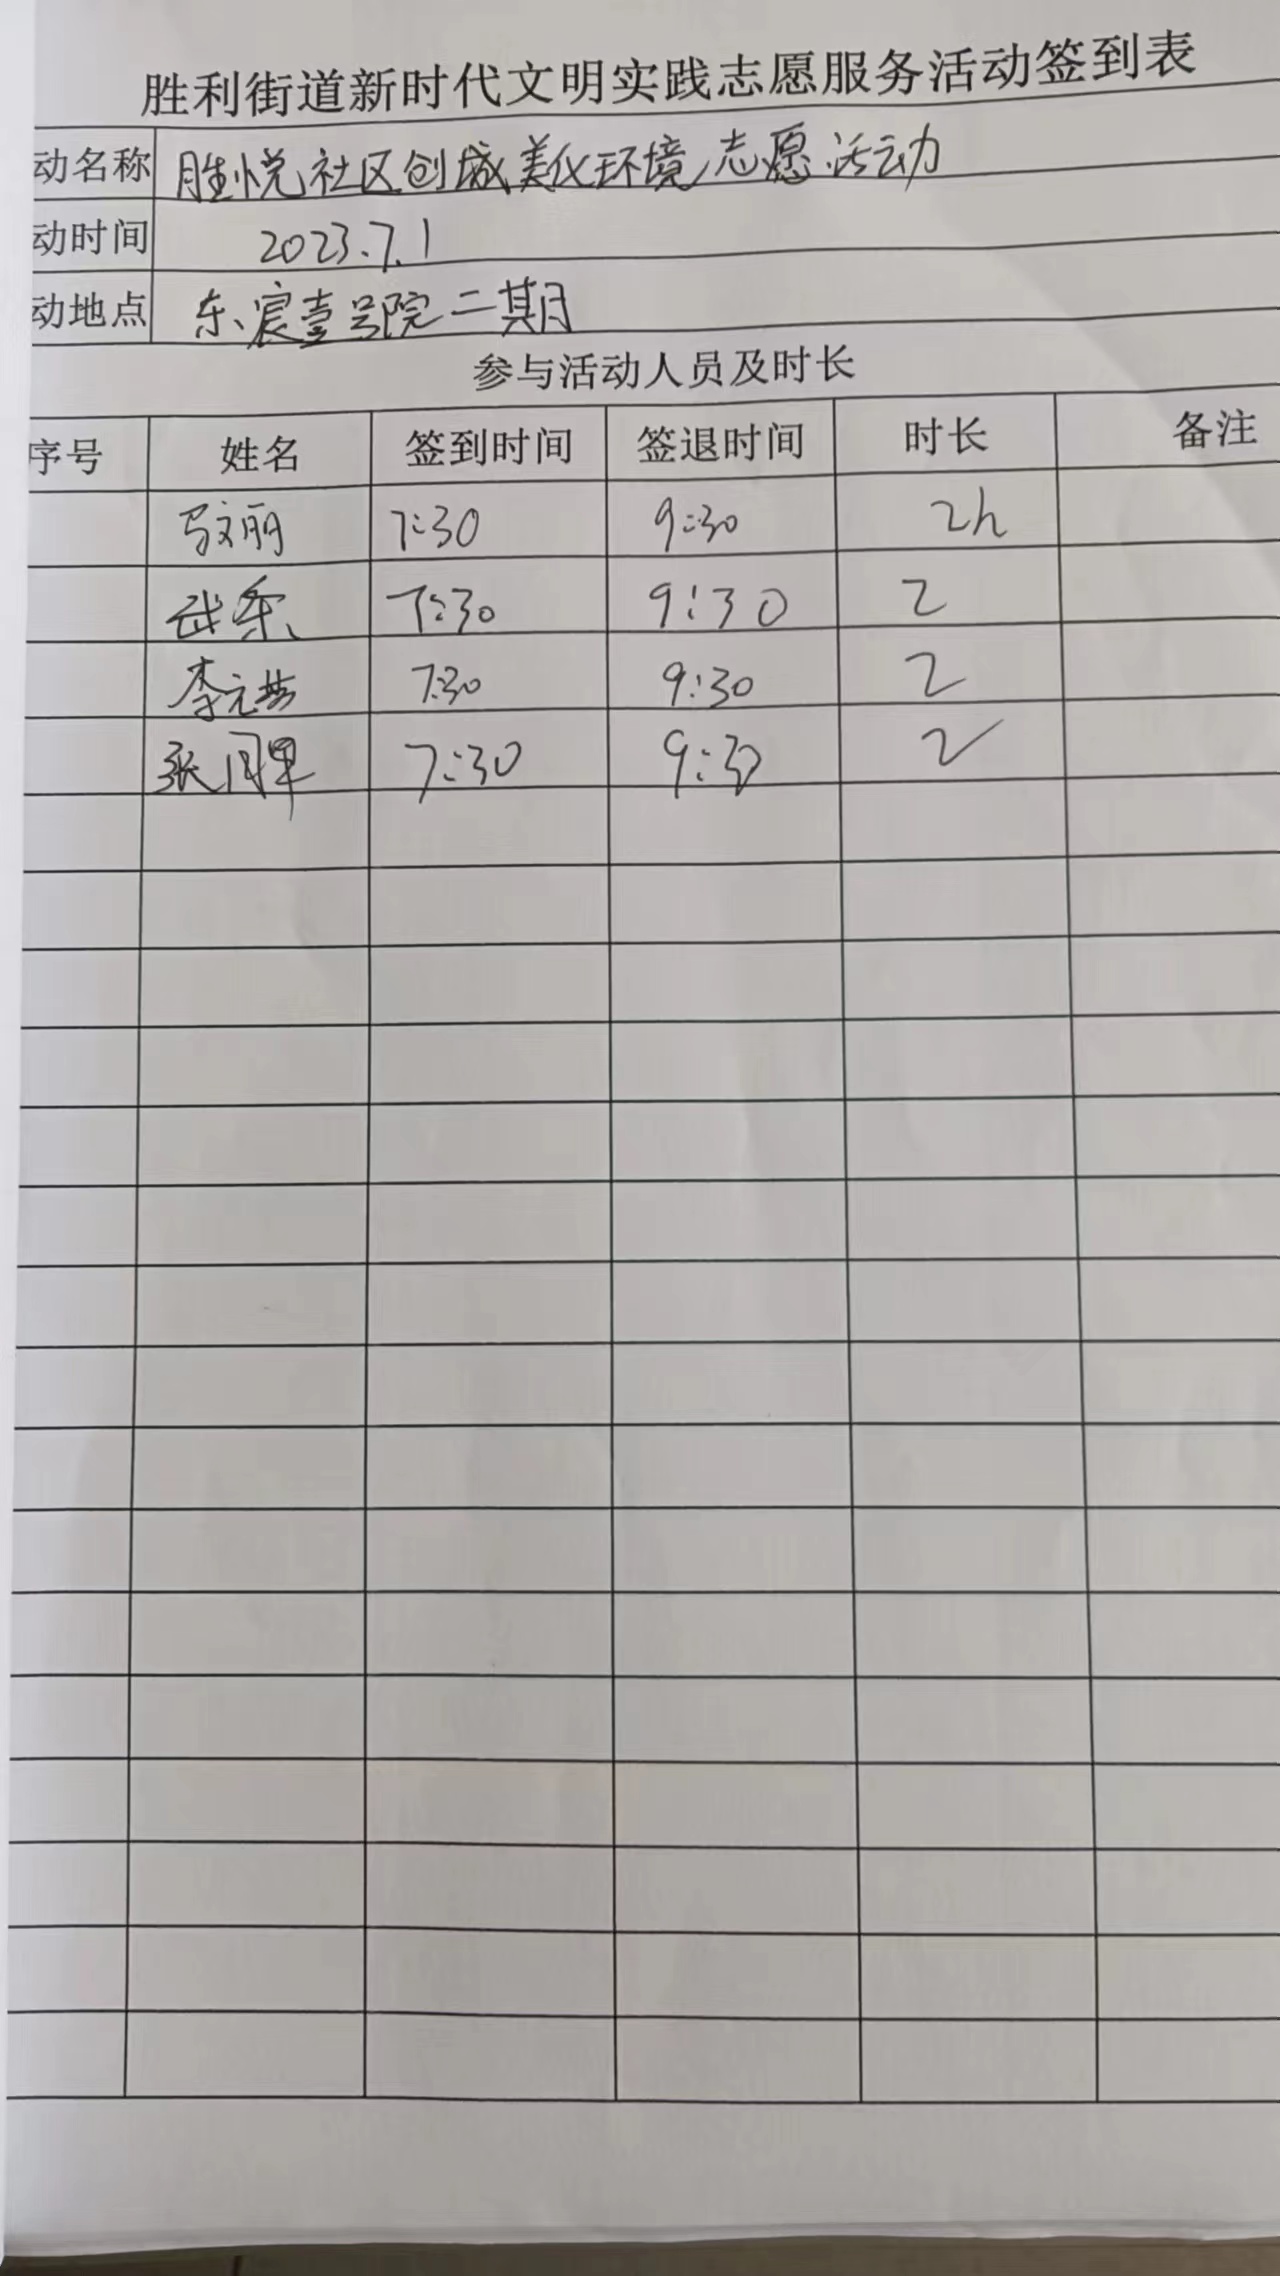 胜利街道新时代文明实践志愿服务活动签到表
动名称 胜悦社区创城美化环境志愿活动
动时间 2023.7.1
动地点 东宸壹号院二期
参与活动人员及时长
序号 姓名 签到时间 签退时间 时长 备注
马文丽 7:30 9:30 2h
7:30 9:30 2
7:30 9:30 2
7:30 9:30 2